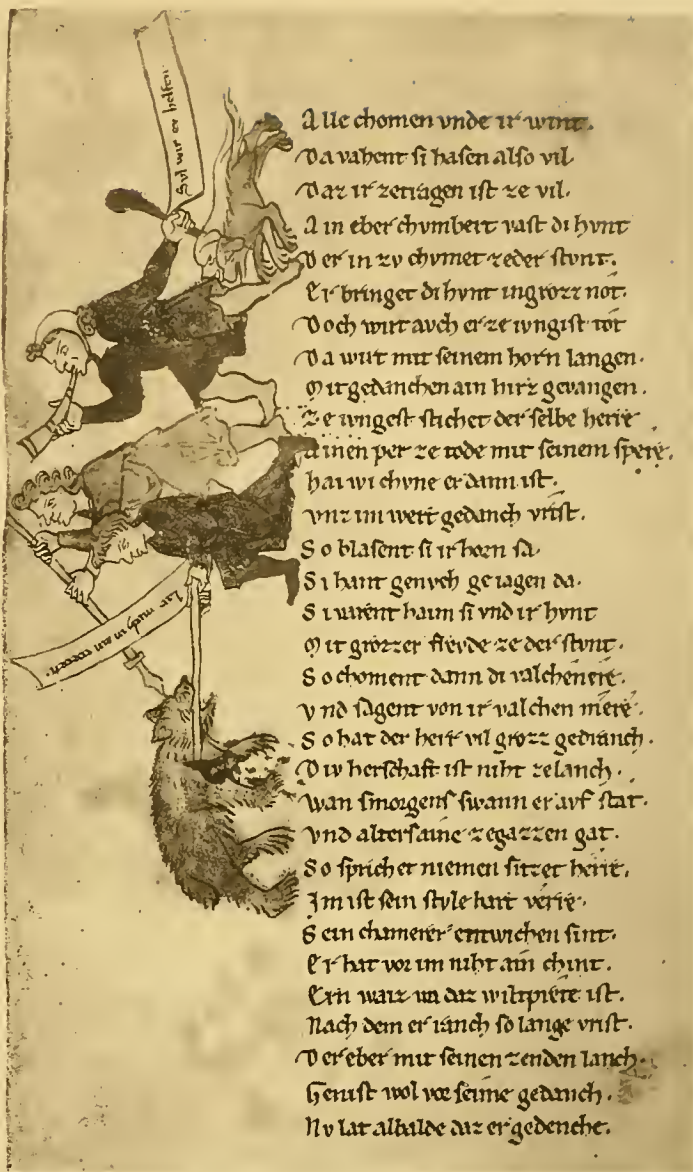 Sul wir er helfen
Alle chomen vnde ir wint.
Da vahent si hasen also vil.
Daz ir zeriagen ist ze vil.
Ain eber chvmbert vast di hvnt
Der in zv chvmet ze der stvnt.
Er bringet di hvnt in grozz not.
Doch wirt avch er ze ivngist tot
Da wirt mit seinem horn langen.
Mit gedanchen ain hirz gevangen.
Ze ivngest stichet der selbe herre
Ainen per ze tode mit seinem spere.
hai wi chvne er dann ist.
vnz im wert gedanch vrist.
So blasent si ir horn sa.
Si hant genvch geiagen da.
Si varent haim si vnd ir hvnt
Mit grozzer frevde ze der stvnt.
So choment dann di valchenere.
Vnd sagent von ir valchen mere.
So hat der herr vil grozz gedranch.
Div herschaft ist niht ze lanch.
wan smorgens swann er avf stat.
vnd alters aine ze gazzen gat.
So sprichet niemen sitzet herre.
Im ist sein stvle hart verre.
Sein chamerer entwichen sint.
Er hat vor im niht ain chint.
Ern waiz wa daz wiltpræte ist.
Nach dem er ranch so lange vrist.
Der eber mit seinen zenden lanch.
Genist wol vor seime gedanch.
Nv lat alhalde daz er gedenche.